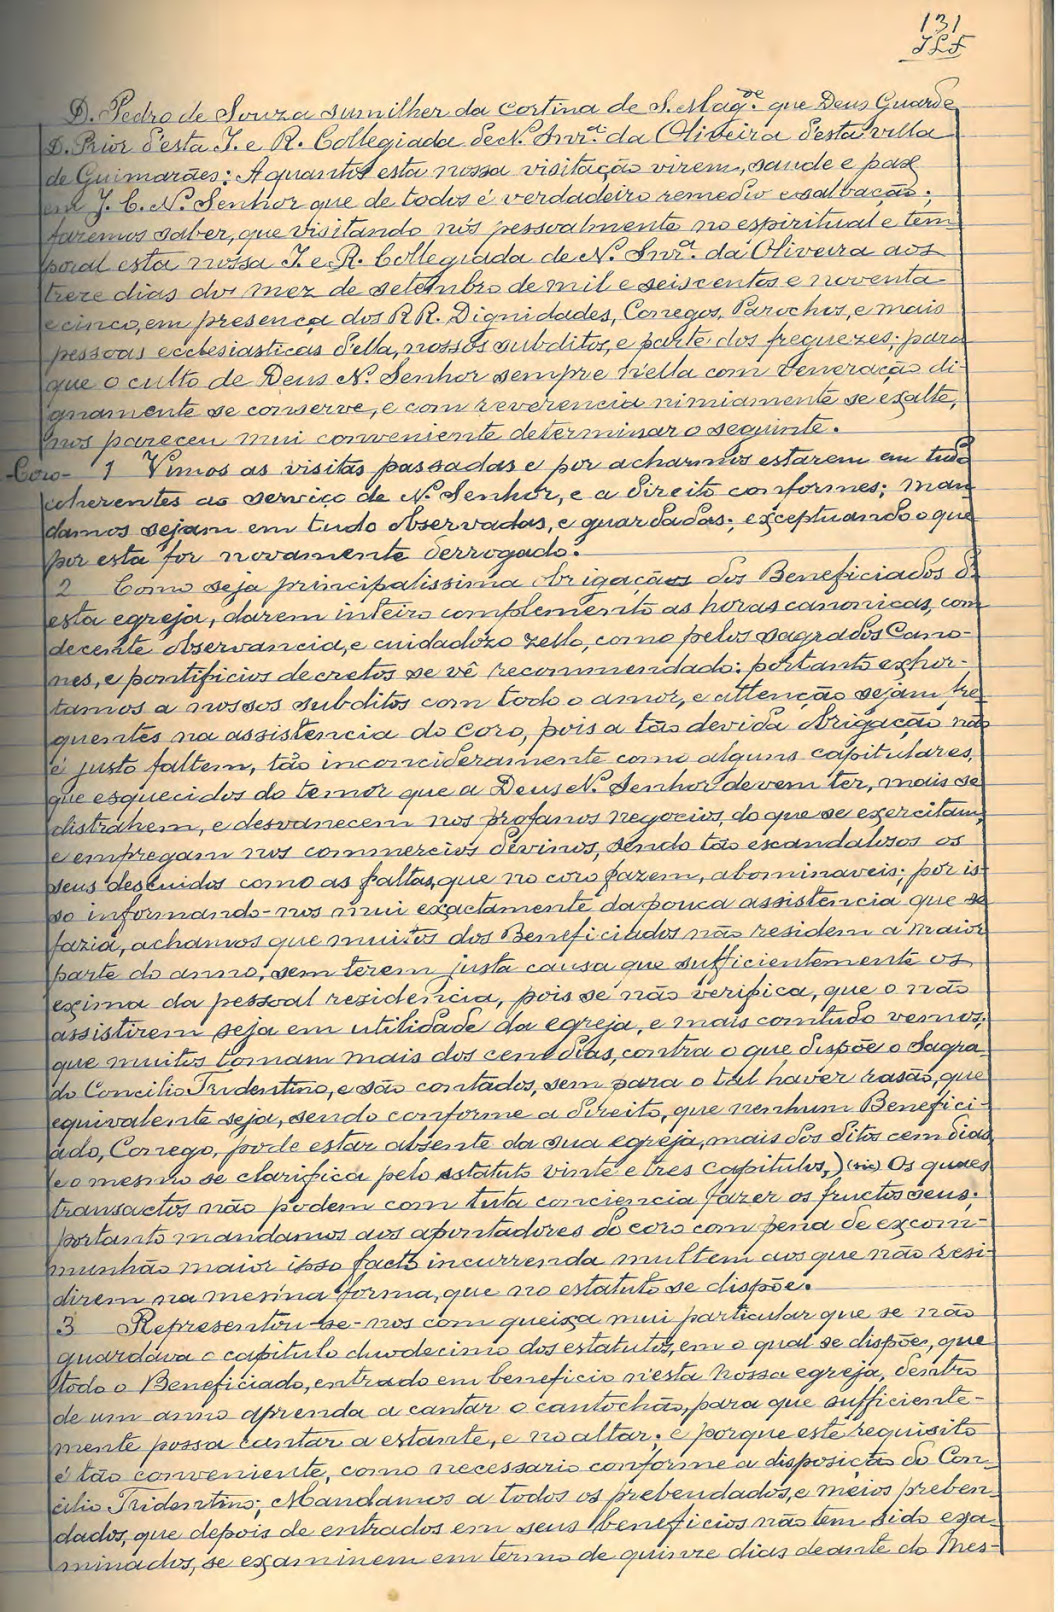 131
JLF
D. Pedro de Souza sumilher da cortina de S. Magde. que Deus Guarde
D. Prior d'esta I. e R. Collegiada de N. Snra. da Oliveira d'esta villa
de Guimarães: A quantos esta nossa visitação virem, saude e paz
em J. C. N. Senhor que de todos é verdadeiro remedio e salbação;
faremos saber, que visitando nós pessoalmente no espiritual e tem-
poral esta nossa I. e R. Collegiada de N. Snra. da Oliveira aos
treze dias do mez de setembro de mil e seiscentos e noventa
e cinco, em presença dos RR. Dignidades, Conegos, Parochos, e mais
pessoas ecclesiasticas d'ella, nossos subditos, e parte dos freguezes; para
que o culto de Deus N. Senhor sempre n'ella com veneração di-
gnamente se conserve, e com reverencia nimiamente se exalte,
nos pareceu mui conveniente determinar o seguinte.
-Coro- 1 Vimos as visitas passadas e por acharmos estarem em tudo
coherentes ao serviço de N. Senhor, e a direito conformes; man-
damos sejam em tudo observadas, e guardadas; exceptuando o que
por esta for novamente derrogado.
2 Como seja principalissima obrigação dos Beneficiados d'
esta egreja, darem inteiro complemento as horas canonicas, com
decente observancia, e cuidadozo zello, como pelos sagrados Cano-
nes, e pontificios decretos se vê recommendado: portanto exhor-
tamos a nossos subditos com todo o amor, e attenção sejam fre-
quentes na assistencia do coro, pois a tão devida obrigação não
é justo faltem, tão inconcideramente como alguns capitulares,
que esquecidos do temor que a Deus N. Senhor devem ter, mais se
distrahem, e desvanecem nos profanos negocios, do que se exercitam,
e empregam nos commercios devinos, sendo tão escandalosos os
seus descuidos como as faltas, que no coro fazem, abominaveis; por is-
so informando-nos mui exactamente da pouca assistencia que se
fazia, achamos que muitos dos Beneficiados não residem a maior
parte do anno, sem terem justa causa que sufficientemente os
exima da pessoal rezidencia, pois se não verifica, que o não
assistirem seja em utilidade da egreja, e mais comtudo vemos;
que muitos tomam mais dos cem dias, contra o que dispõe o Sagra-
do Concilio Tridentino, e são contados, sem para o tal haver rasão, que
equivalente seja, sendo conforme a direito, que nenhum Benefici-
ado, Conego, pode estar absente da sua egreja, mais dos ditos cem dias
(e o mesmo se clarifica pelo estatuto vinte e tres capitulos,) (sic) Os quaes
transactos não podem com tuta conciencia fazer os fructos seus;
portanto mandamos aos apontadores do coro com pena de excom-
munhão maior ipso facto incurrenda multem aos que não resi-
direm na mesma forma, que no estatuto se dispõe.
3 Representou-se-nos com queixa mui particular que se não
guardava o capitulo duodecimo dos estatutos, em o qual se dispõe, que
todo o Beneficiado, entrado em beneficio n'esta nossa egreja, dentro
de um anno aprenda a cantar o cantochão, para que sufficiente-
mente possa cantar a estante, e no altar; e porque este requisito
é tão conveniente, como necessario conforme a disposição do Con-
cilio Tridentino; Mandamos a todos os prebendados, e meios preben-
dados, que depois de entrados em seus beneficios não tem sido exa-
minados, se examinem em termo de quinze dias deante do Mes-